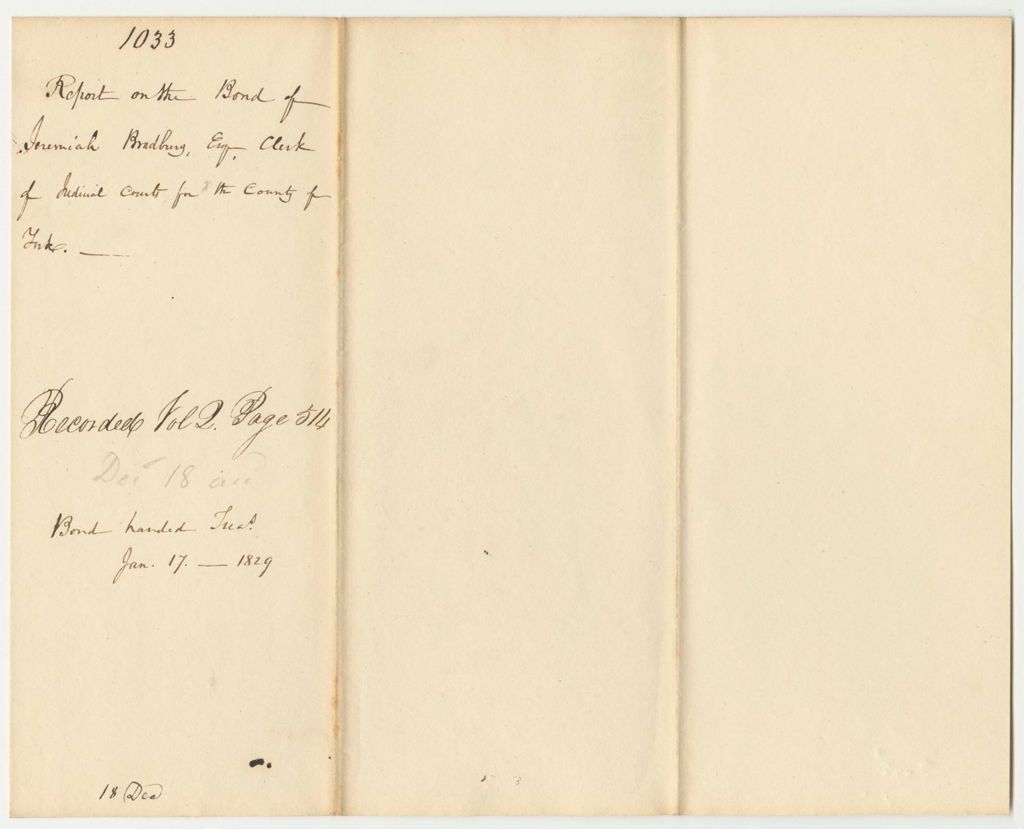 1033
Report on the Bond of
Jeremiah Bradbury, Esq. Clerk
of Judicial Courts for the County of
York. —
Recorded Vol 2. Page 514
Dec 18
Bond handed Treas.
Jan. 17. — 1829
18 Dec